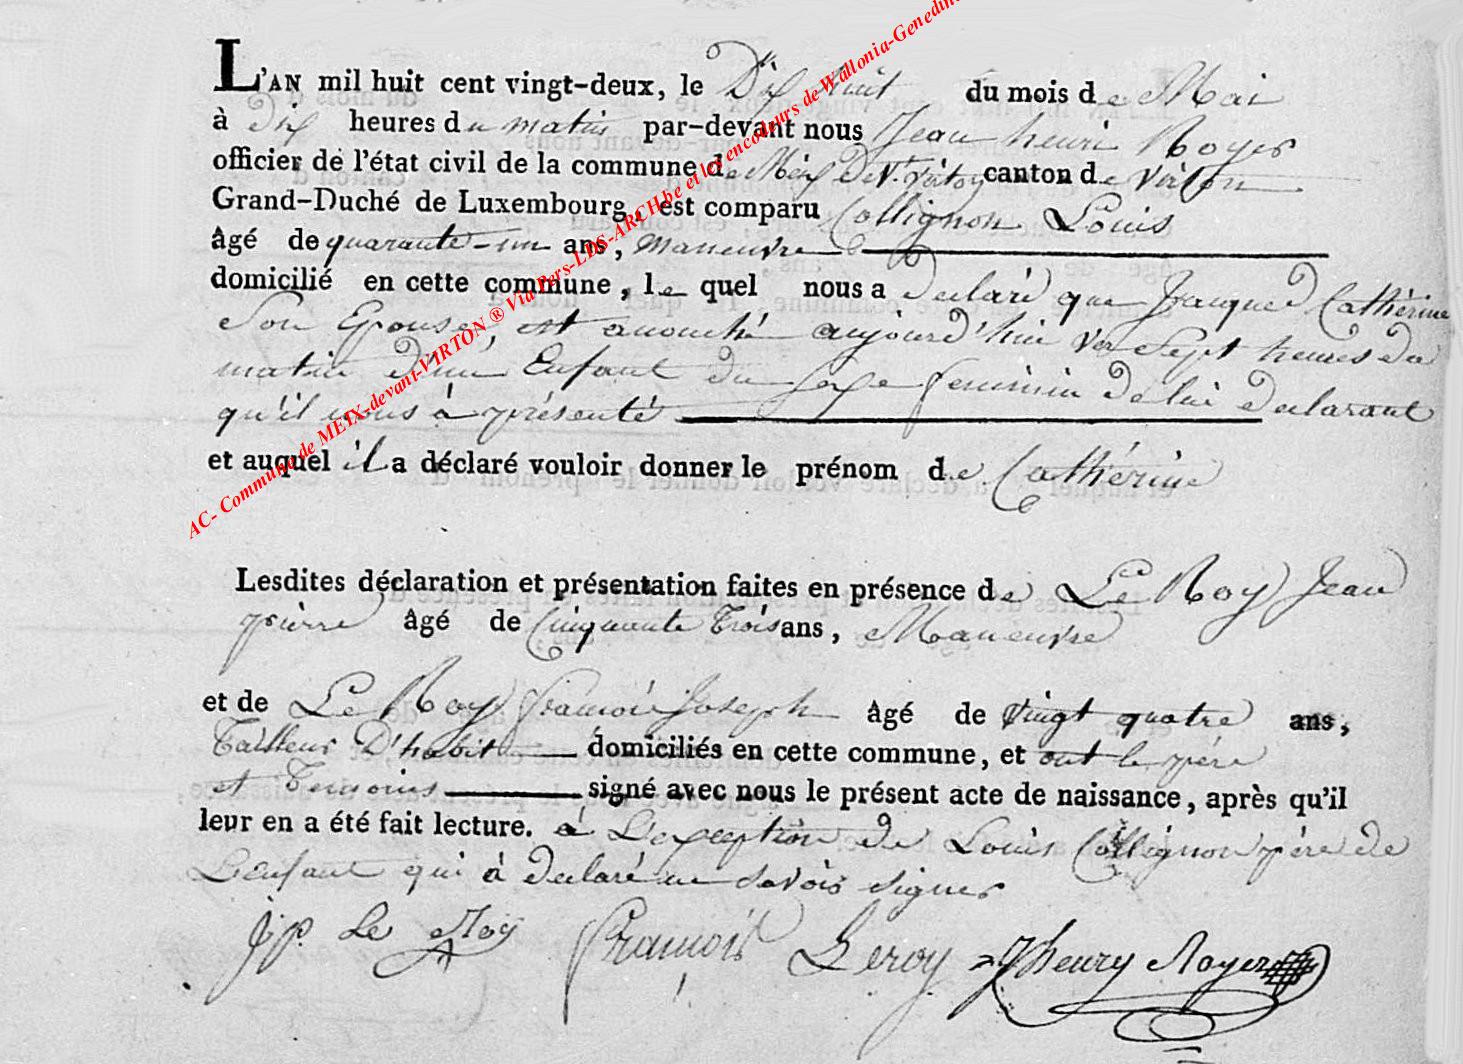 L'AN mil huit cent vingt-deux, le Dix huit du mois de Mai
à dix heures du matin par-devant nous Jean henri Royer
officier de l'état civil de la commune de Méix Devt. Virton canton de virton
Grand-Duché de Luxembourg, est comparu Collignon Louis
âgé de quarante-un ans, maneuvre
domicilié en cette commune, le quel nous a declaré que Cathérine
Son Epouse, est accouché aujourd'hui ver Sept heures du
matin d'un Enfant du sexe feminin de lui declarant
qu'il nous à présenté
et auquel il a déclaré vouloir donner le prénom de Cathérine
Lesdites déclaration et présentation faites en présence de Le Roy Jean
pierre âgé de Cinquante Trois ans, Maneuvre
et de Le Roy francois Joseph âgé de vingt quatre ans,
Tailleur D'habit domiciliés en cette commune, et ont le père
et Temoins signé avec nous le présent acte de naissance, après qu'il
leur en a été fait lecture. à L'exception de Louis Collignon père de
L'enfant qui à declaré ne savoir signer
J p. Le Roy François Leroy Jhenry Royer
AC- Commune de MEIX-devant-VIRTON ® Via Pers-LDS-ARCH.be et les encodeurs de Wallonia-Genedin